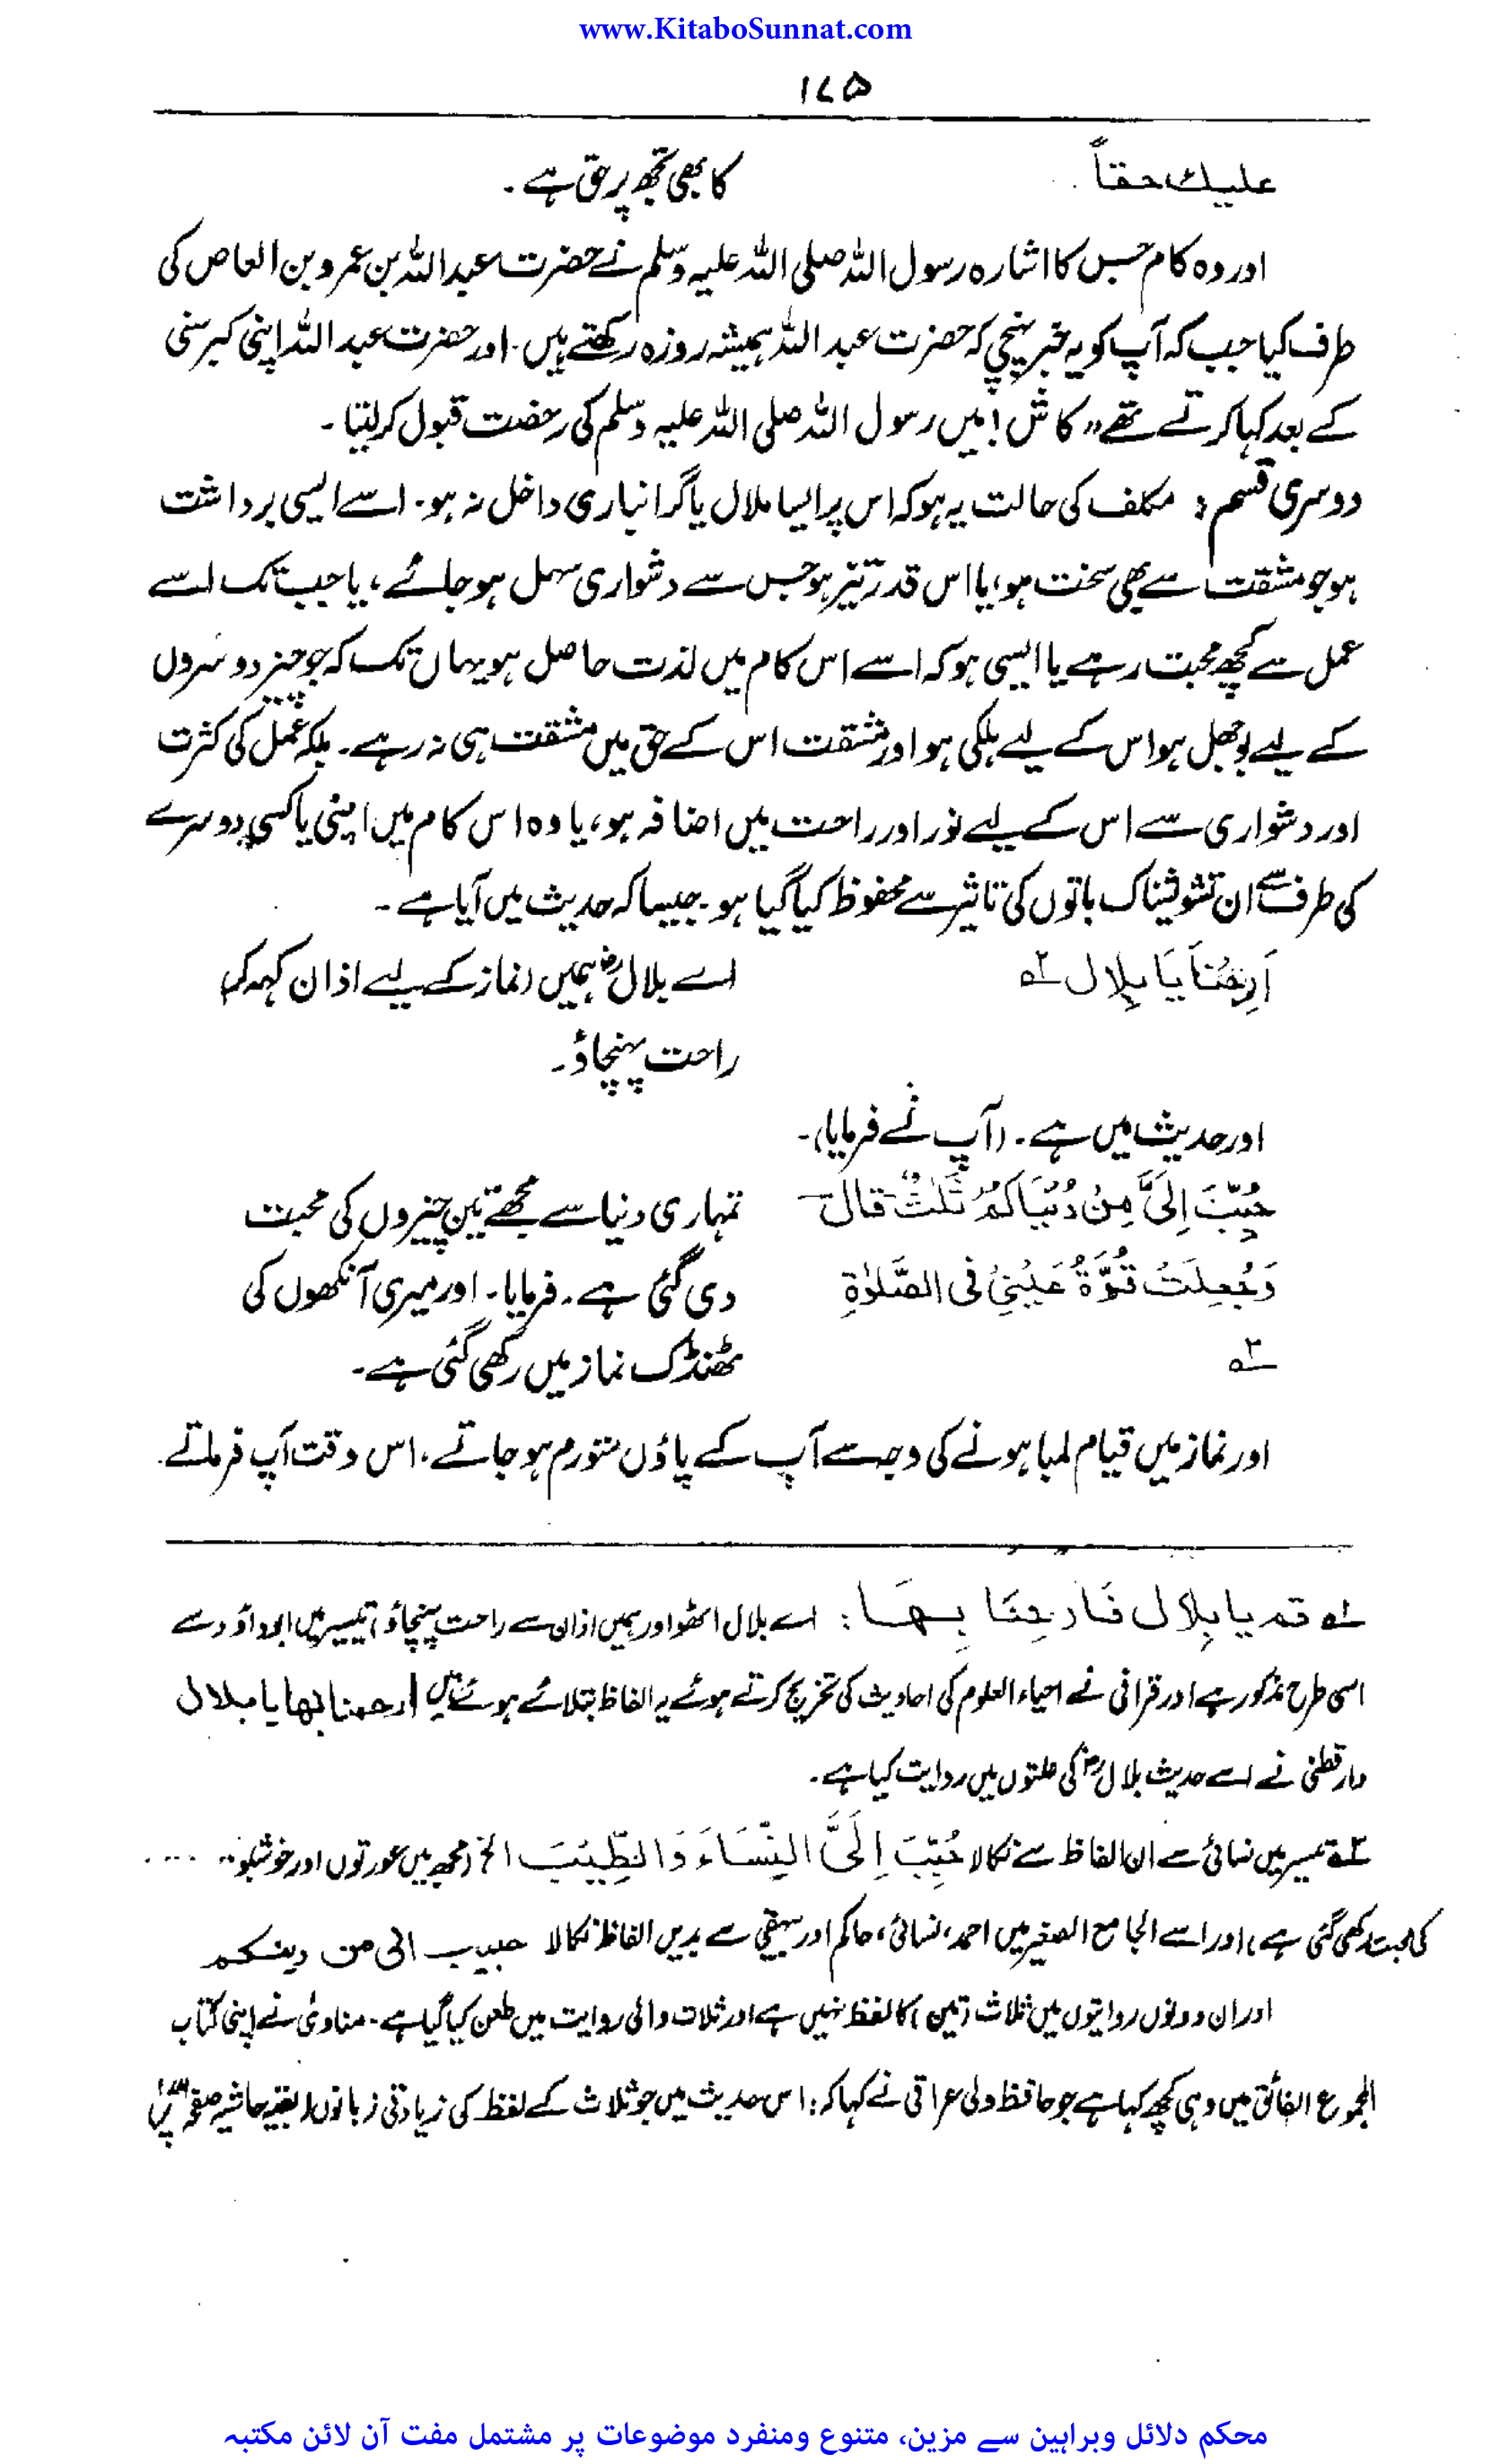 www.KitaboSunnat.com
۱۷۵
علیك حقاً
کا بھی تجھ پر حق ہے۔
اور وہ کام جس کا اشارہ رسول اللہ صلی اللہ علیہ وسلم نے حضرت عبد اللہ بن عمرو بن العاص کی
طرف کیا جب کہ آپ کو یہ خبر پہنچی کہ حضرت عبد اللہ ہمیشہ روزہ رکھتے ہیں۔ اور حضرت عبد اللہ اپنی کبر سنی
کے بعد کہا کرتے تھے "کاش! میں رسول اللہ صلی اللہ علیہ وسلم کی رخصت قبول کر لیتا۔
دوسری قسم: مکلف کی حالت یہ ہو کہ اس پر ایسا ملال یا گرانباری داخل نہ ہو۔ اسے ایسی برداشت
ہو جو مشقت سے بھی سخت ہو، یا اس قدر تیز ہو جس سے دشواری سہل ہو جائے، یا جب تک اسے
عمل سے کچھ محبت رہے یا ایسی ہو کہ اسے اس کام میں لذت حاصل ہو یہاں تک کہ جو چیز دوسروں
کے لیے بوجھل ہو اس کے لیے ہلکی ہو اور مشقت اس کے حق میں مشقت ہی نہ رہے۔ بلکہ عمل کی کثرت
اور دشواری سے اس کے لیے نور اور راحت میں اضافہ ہو، یا وہ اس کام میں اپنی یا کسی دوسرے
کی طرف سے ان تشویشناک باتوں کی تاثیر سے محفوظ کیا گیا ہو۔ جیسا کہ حدیث میں آیا ہے۔
اَرِحْنَا یَا بِلال ۲؎
اے بلالؓ ہمیں (نماز کے لیے اذان کہہ کر)
راحت پہنچاؤ۔
اور حدیث میں ہے۔ (آپ نے فرمایا)۔
حُبِّبَ اِلَیَّ مِنْ دُنْیَاکُمْ ثَلٰثٌ قال
تمہاری دنیا سے مجھے تین چیزوں کی محبت
وَجُعِلَتْ قُرَّةُ عَیْنِیْ فی الصَّلٰوةِ
دی گئی ہے۔ فرمایا۔ اور میری آنکھوں کی
۳؎
ٹھنڈک نماز میں رکھی گئی ہے۔
اور نماز میں قیام لمبا ہونے کی وجہ سے آپ کے پاؤں متورم ہو جاتے، اس وقت آپ فرماتے
قم یا بِلال فَارحِنَا بِهَا: اے بلال اٹھو اور ہمیں اذان سے راحت پہنچاؤ، تیسیر میں ابوداؤد سے
اسی طرح مذکور ہے اور قرافی نے احیاء العلوم کی احادیث کی تخریج کرتے ہوئے یہ الفاظ بتلائے ہوئے ہیں ارحنا بها یا بلال
دارقطنی نے اسے حدیث بلالؓ کی علتوں میں روایت کیا ہے۔
تیسیر میں نسائی سے ان الفاظ سے نکالا حُبِّبَ اِلَیَّ النِّسَاءَ وَالطِّیْبَ الخ (مجھ میں عورتوں اور خوشبو .....
کی محبت رکھی گئی ہے) اور اسے الجامع الصغیر میں احمد، نسائی، حاکم اور بیہقی سے بدیں الفاظ نکالا حبیب الی من دینکم
اور ان دونوں روایتوں میں ثلاث (تین) کا لفظ نہیں ہے اور ثلاث والی روایت میں طعن کیا گیا ہے۔ مناوی نے اپنی کتاب
المجموع الفائق میں وہی کچھ کہا ہے جو حافظ ولی عراقی نے کہا کہ: اس حدیث میں جو ثلاث کے لفظ کی زیادتی زبانوں (بقیہ حاشیہ صفحہ پر)
محکم دلائل وبراہین سے مزین، متنوع ومنفرد موضوعات پر مشتمل مفت آن لائن مکتبہ